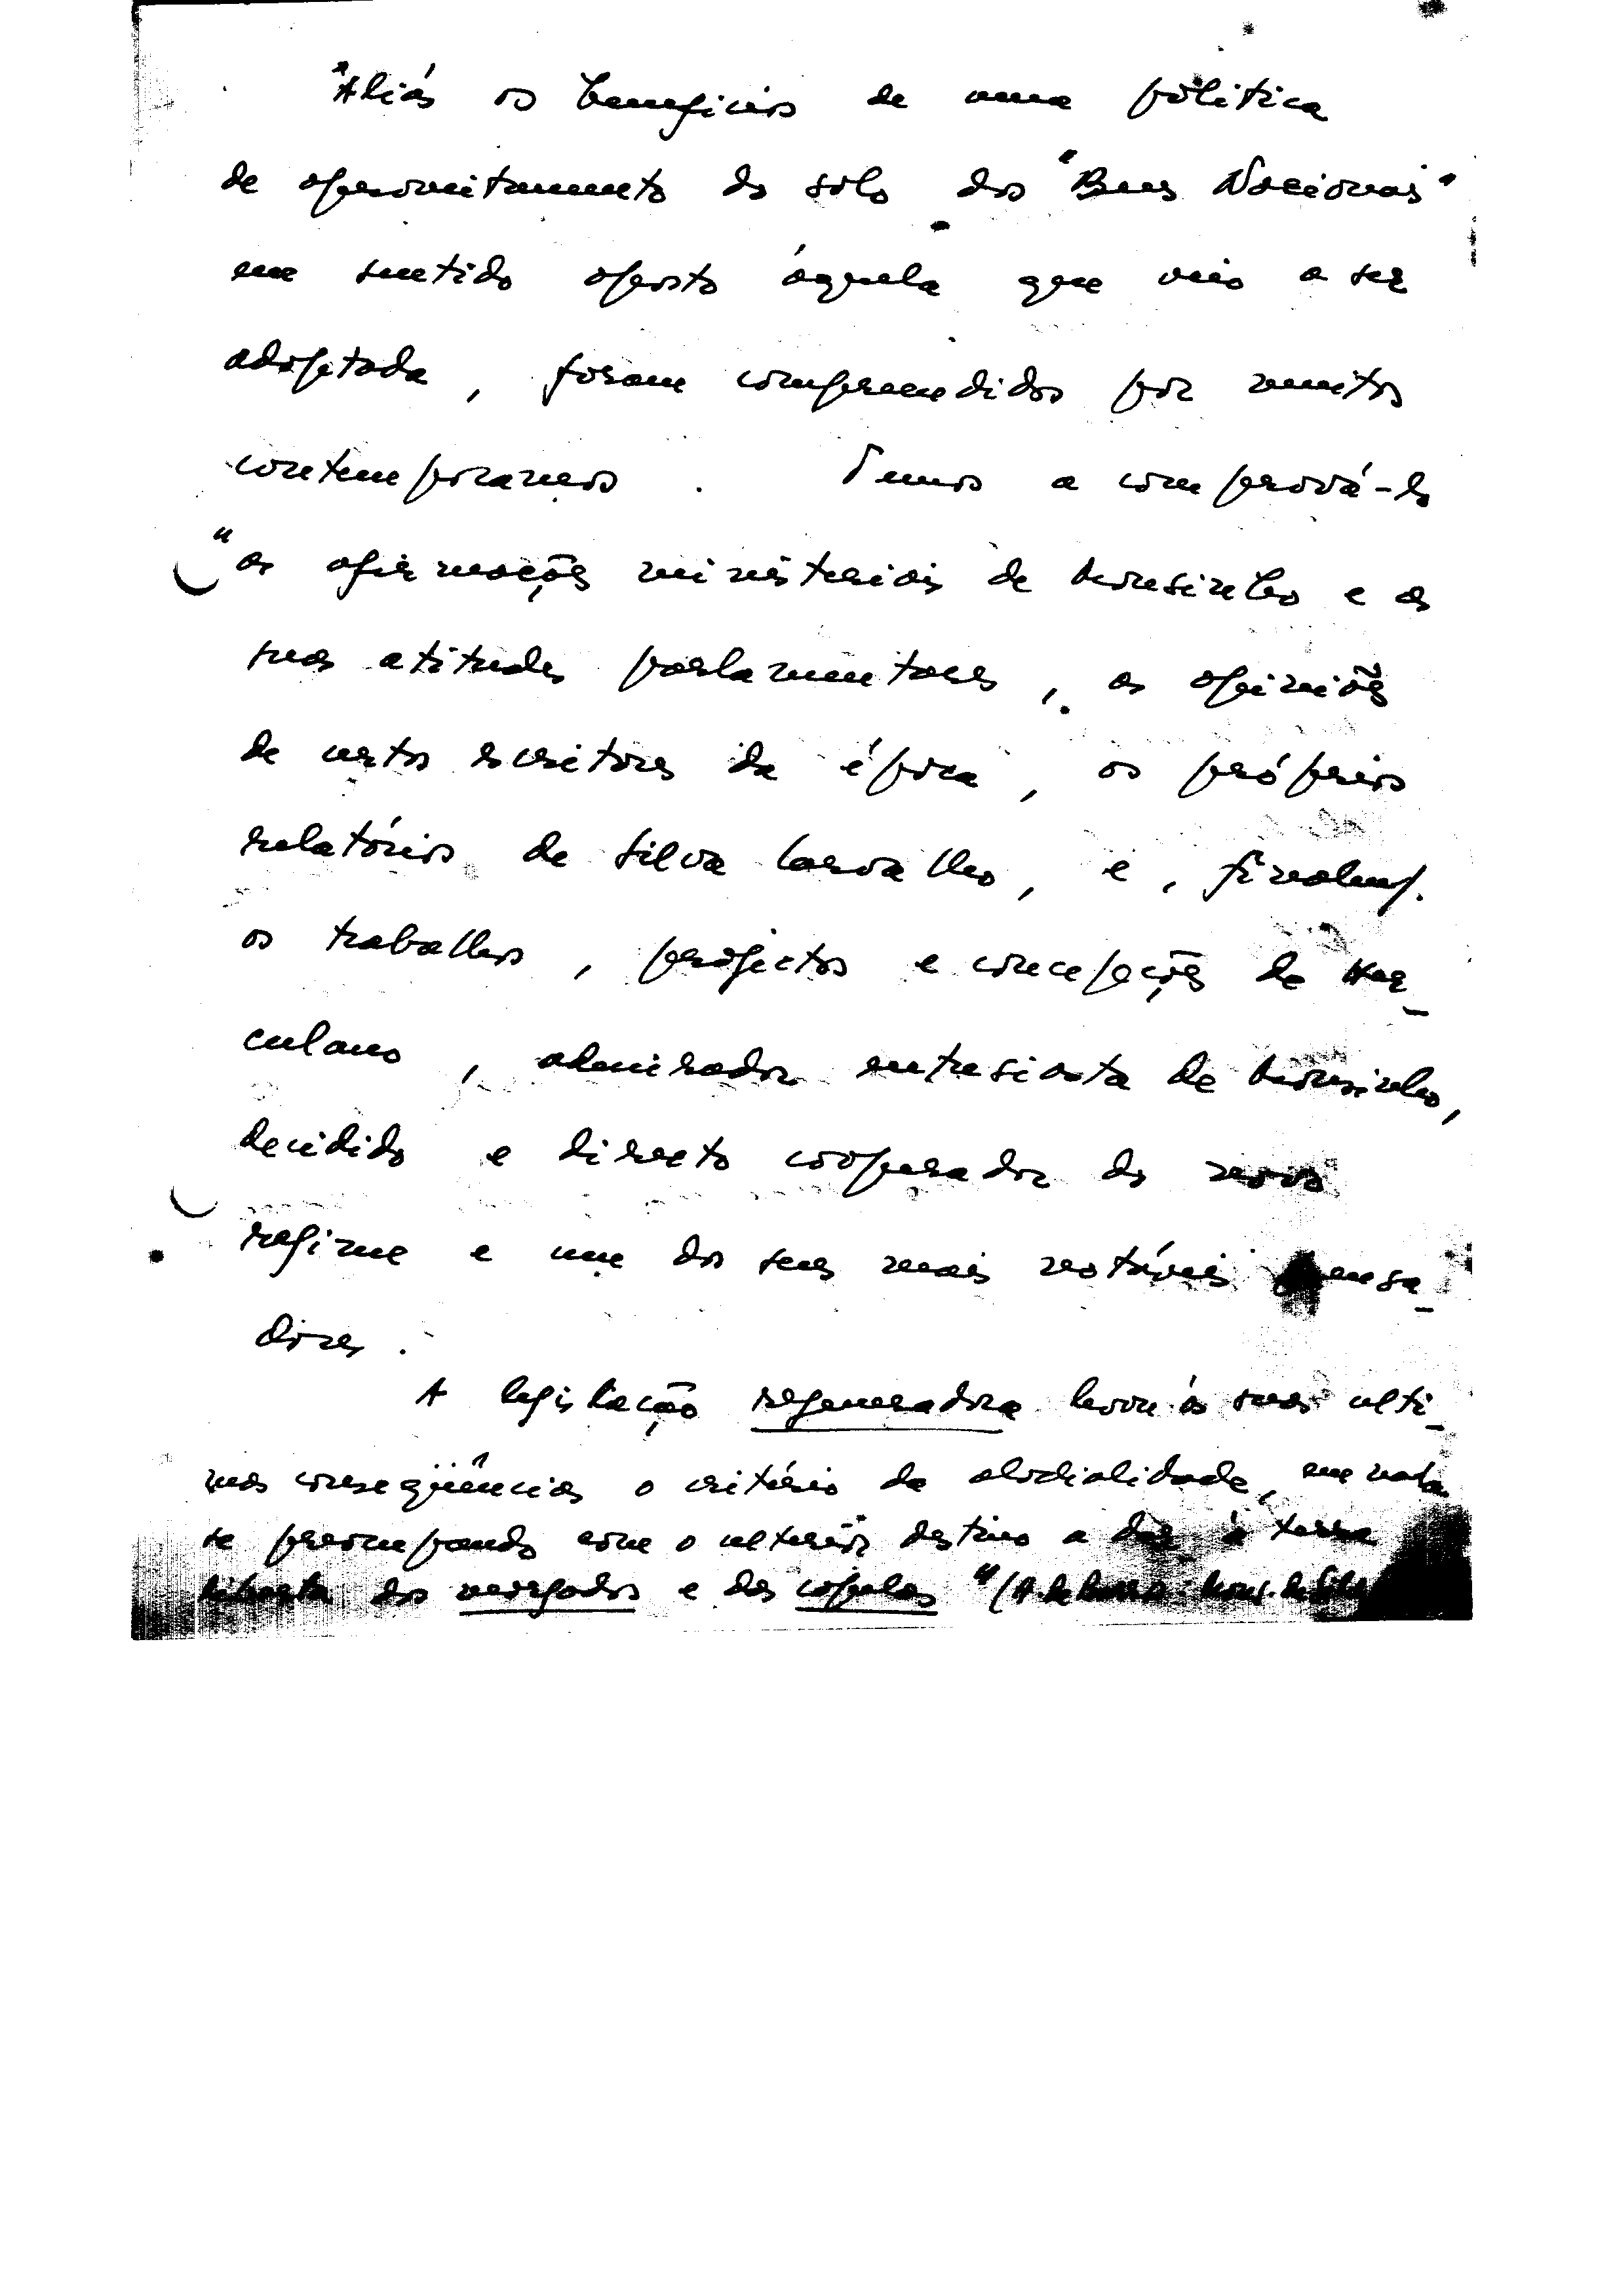 "Aliás os benefícios de uma política
de aproveitamento do solo dos "Bens Nacionais"
em sentido oposto àquela que veio a ser
adoptada, foram compreendidos por muitos
contemporaneos. Temos a comprová-lo
"as afirmações ministeriais de Mousinho e as
suas atitudes parlamentares, as opiniões
de certos escritores da época, os próprios
relatórios de Silva Carvalho, e, finalmᵗ.
os trabalhos, projectos e concepções de Her-
culano, admirador entusiasta de Mousinho,
decidido e directo cooperador do novo
regime e um dos seus mais notáveis pensa-
dores.
A legislação regeneradora levou às suas ulti-
mas conseqüências o critério da alodialidade, em nada
se preocupando com o ulterior destino a dar à terra
liberta dos morgados e das capelas" (A. de